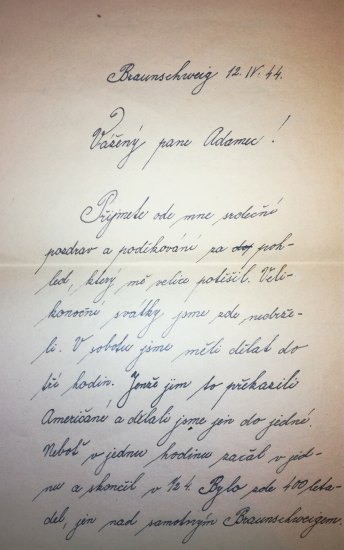 Braunschweig 12.IV.44.
Vážený pane Adamec!
Přijmete ode mne srdečné
pozdrav a poděkování za poh-
led, který mě velice potěšil. Veli-
konoční svátky jsme zde nedrže-
li. V sobotu jsme měli dělat do
tří hodin. Jenže jim to překazili
Američané a dělali jsme jen do jedné.
Neboť v jednu hodinu začal v jed-
nu a skončil v 1/2 4. Bylo zde 400 leta-
del, jen nad samotným Braunschweigem.